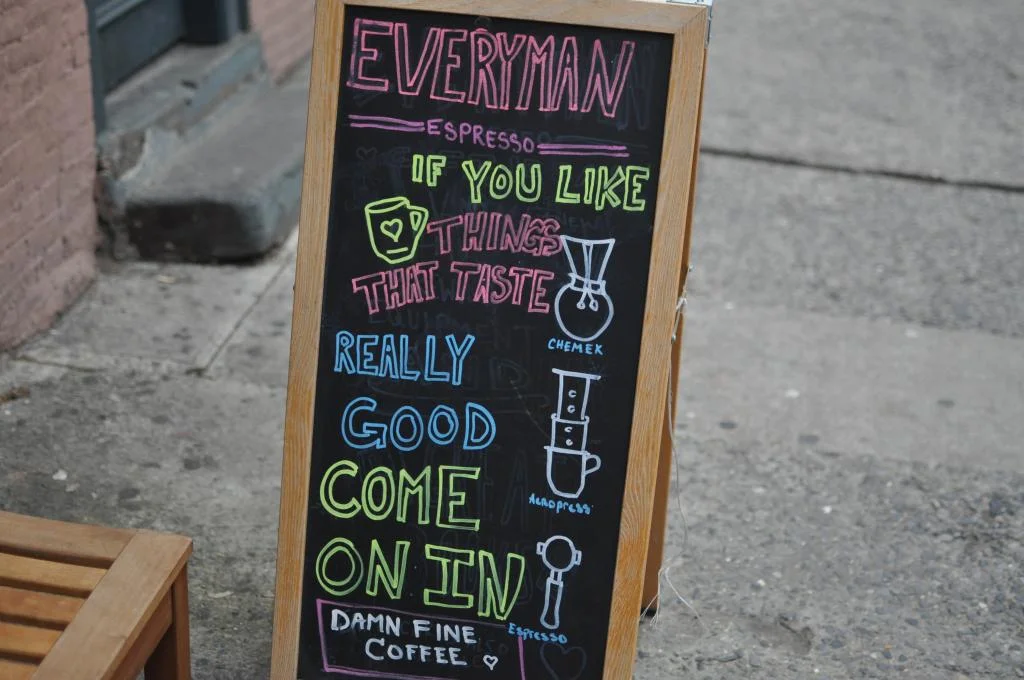 EVERYMAN
ESPRESSO
IF YOU LIKE
THINGS
THAT TASTE
CHEMEX
REALLY
GOOD
Aeropress
COME
ON IN
Espresso
DAMN FINE
COFFEE